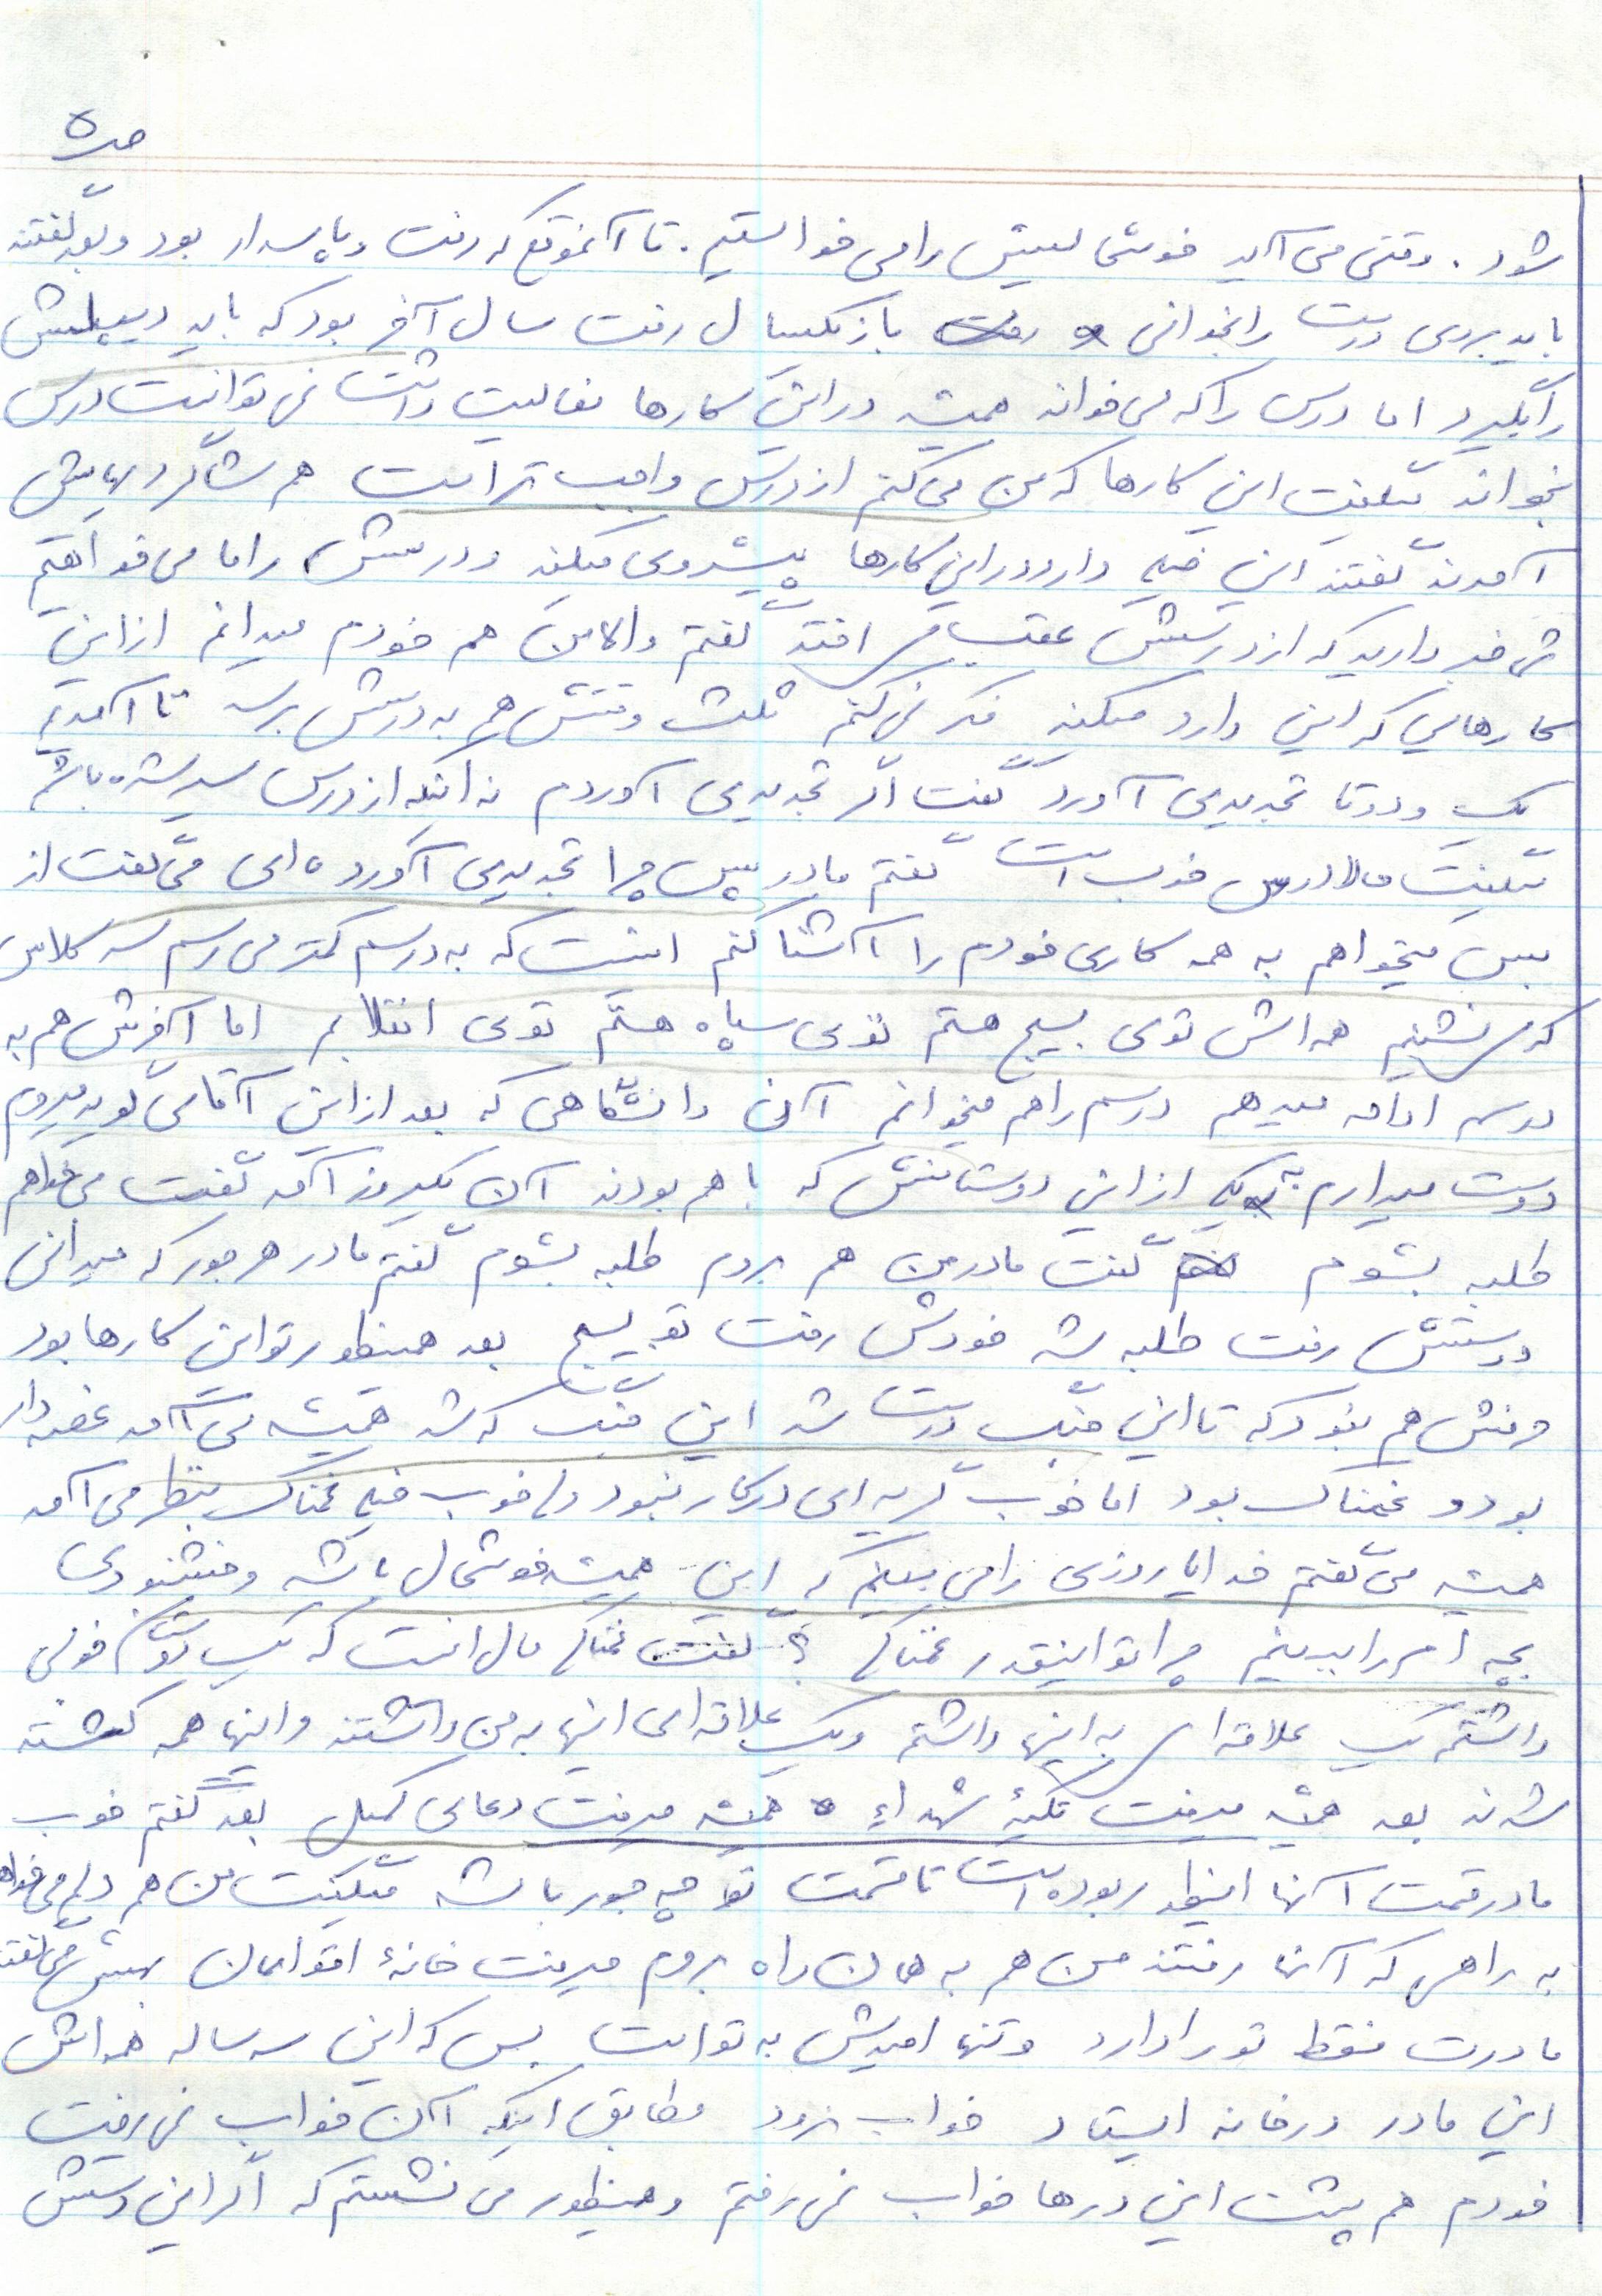 ص۵
شود. وقتی می آید خوشحالیش را می خواستیم. تا آنموقع که رفت و پاسدار بود و بعد گفتند
باید بروی درست را بخوانی باز یکسال رفت سال آخر بود که باید دیپلمش
را بگیرد اما درس را که می خواند همیشه در این کارها فعالیت داشت نمی توانست درس
بخواند میگفت این کارها که من می کنم از درس واجب تر است هم شاگردیهایش
آمدند گفتند این خیلی دارد در این کارها پیشروی میکند و درسش را ما می خواهیم
خبر دارید که از درسش عقب می افتد گفتم والا من هم خودم میدانم از این
کارهایی که این دارد میکند فکر نمی کنم ثلث وقتش هم به درسش برسد تا آمدیم
یک و دو تا تجدیدی آورد گفت اگر تجدیدی آوردم نه اینکه از درس سیر شده باشم
میگفت حالا درس خوب است گفتم مادر پس چرا تجدیدی آورده ای می گفت از
بس میخواهم به همه کاری خودم را آشنا کنم اینست که به درسم کمتر می رسم سه کلاس
که می نشینم همه اش توی بسیج هستم توی سپاه هستم توی انقلابم اما آخرش هم به
درسم ادامه میدهم درسم را هم میخوانم آن دانشگاهی که بعد از این آقا می گوید میروم
دوست میدارم یکی از این دوستانش که با هم بودند آن یکروز آمد گفت می خواهم
طلبه بشوم گفت مادر من هم بروم طلبه بشوم گفتم مادر هر جور که میدانی
دوستش رفت طلبه شد خودش رفت تو بسیج بعد همینطور تو این کارها بود
حرفش هم نبود که تا این جنگ درست شد این جنگ که شد همیشه می آمد غصه دار
بود و غمناک بود اما خوب گریه ای در کار نبود ولی خوب خیلی غمناک بنظر می آمد
همیشه می گفتم خدایا روزی را من ببینم که این همیشه خوشحال باشد و خشنودی
بچه ام را ببینم چرا تو اینقدر غمناکی؟ گفت غمناکی مال اینست که یک دوستان خوبی
داشتم یک علاقه ای به اینها داشتم و یک علاقه ای اینها به من داشتند و اینها همه کشته
شدند بعد همیشه میرفت تکیهٔ شهداء همیشه میرفت دعای کمیل بعد گفتم خوب
مادر قسمت آنها اینطور بوده است تا قسمت تو چه جور باشد میگفت من هم دلم می خواهد
به راهی که آنها رفتند من هم به همان راه بروم میرفت خانهٔ اقوامان بهش می گفتند
مادرت فقط تو را دارد و تنها امیدش به تو است بس که این سه ساله همه اش
این مادر در خانه ایستاد خواب نرود مطابق اینکه آن خواب نمی رفت
خودم هم پشت این درها خواب نمی رفتم و همینطور می نشستم که اگر این دستش